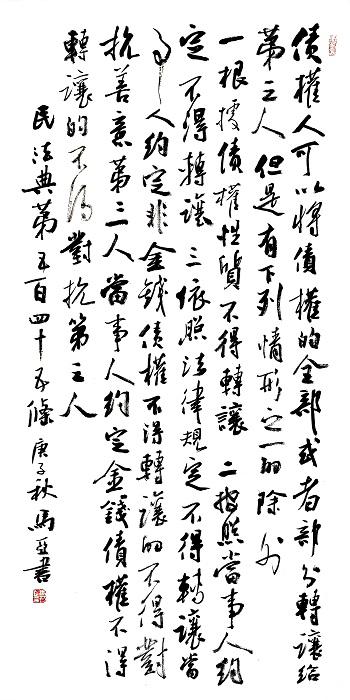 債權人可以將債權的全部或者部分轉讓給
第三人但是有下列情形之一的除外
一根據債權性質不得轉讓 二按照當事人約
定不得轉讓 三依照法律規定不得轉讓當
事人約定非金錢債權不得轉讓的不得對
抗善意第三人當事人約定金錢債權不得
轉讓的不得對抗第三人
民法典第五百四十五條 庚子秋馬亞書